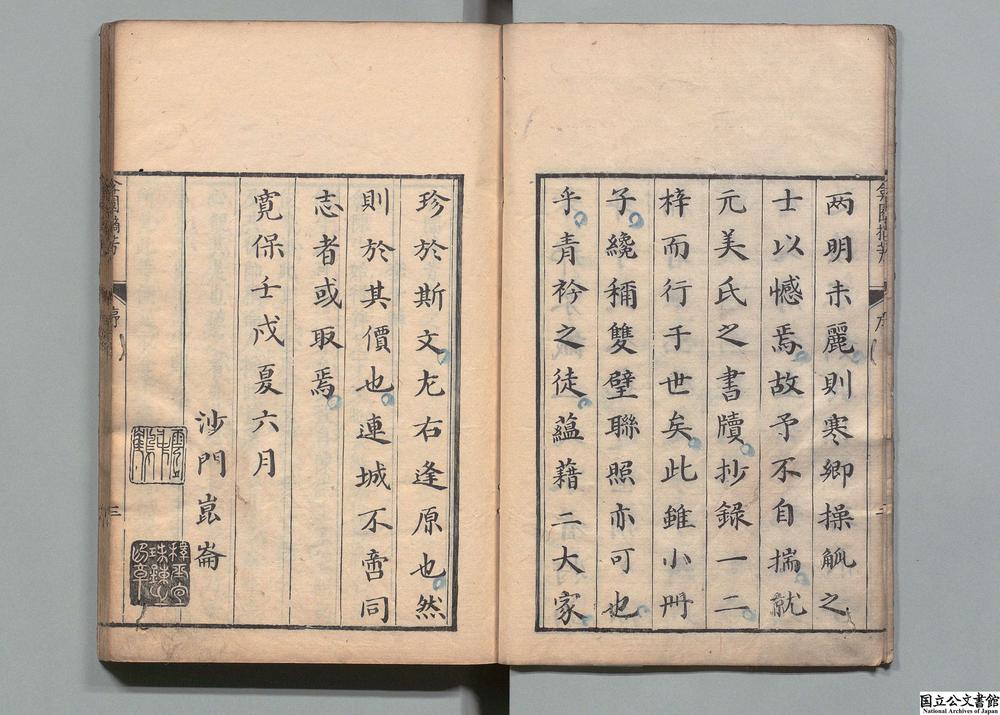 两明未麗則寒鄉操觚之
士以憾焉故予不自揣就
元美氏之書牘抄錄一二
梓而行于世矣此雖小册
子纔稱雙璧聯照亦可也
乎青衿之徒蘊藉二大家
珍於斯文左右逢原也然
則於其價也連城不啻同
志者或取焉
寬保壬戌夏六月
沙門崑崙
序
三
国立公文書館
National Archives of Japan